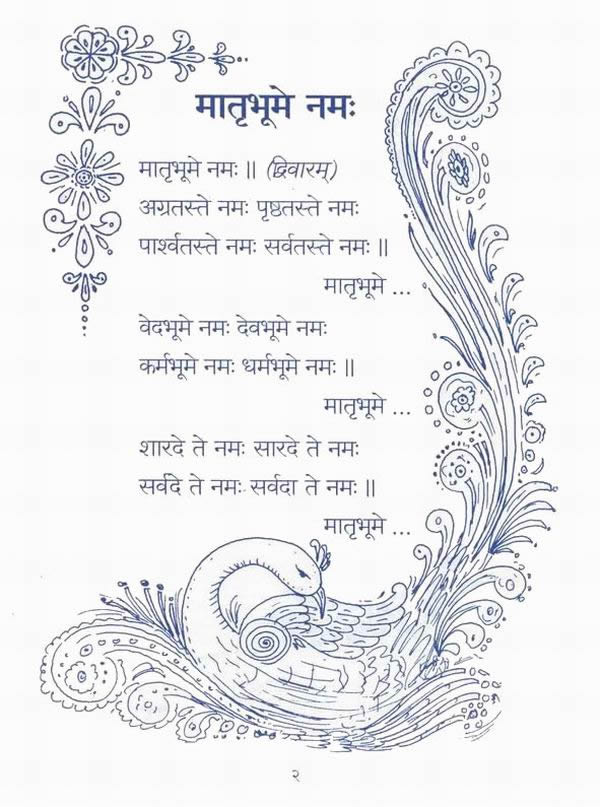 मातृभूमे नमः
मातृभूमे नमः ॥ (द्विवारम्)
अग्रतस्ते नमः पृष्ठतस्ते नमः
पार्श्वतस्ते नमः सर्वतस्ते नमः ॥
मातृभूमे ...
वेदभूमे नमः देवभूमे नमः
कर्मभूमे नमः धर्मभूमे नमः ॥
मातृभूमे ...
शारदे ते नमः सारदे ते नमः
सर्वदे ते नमः सर्वदा ते नमः ॥
मातृभूमे ...
२